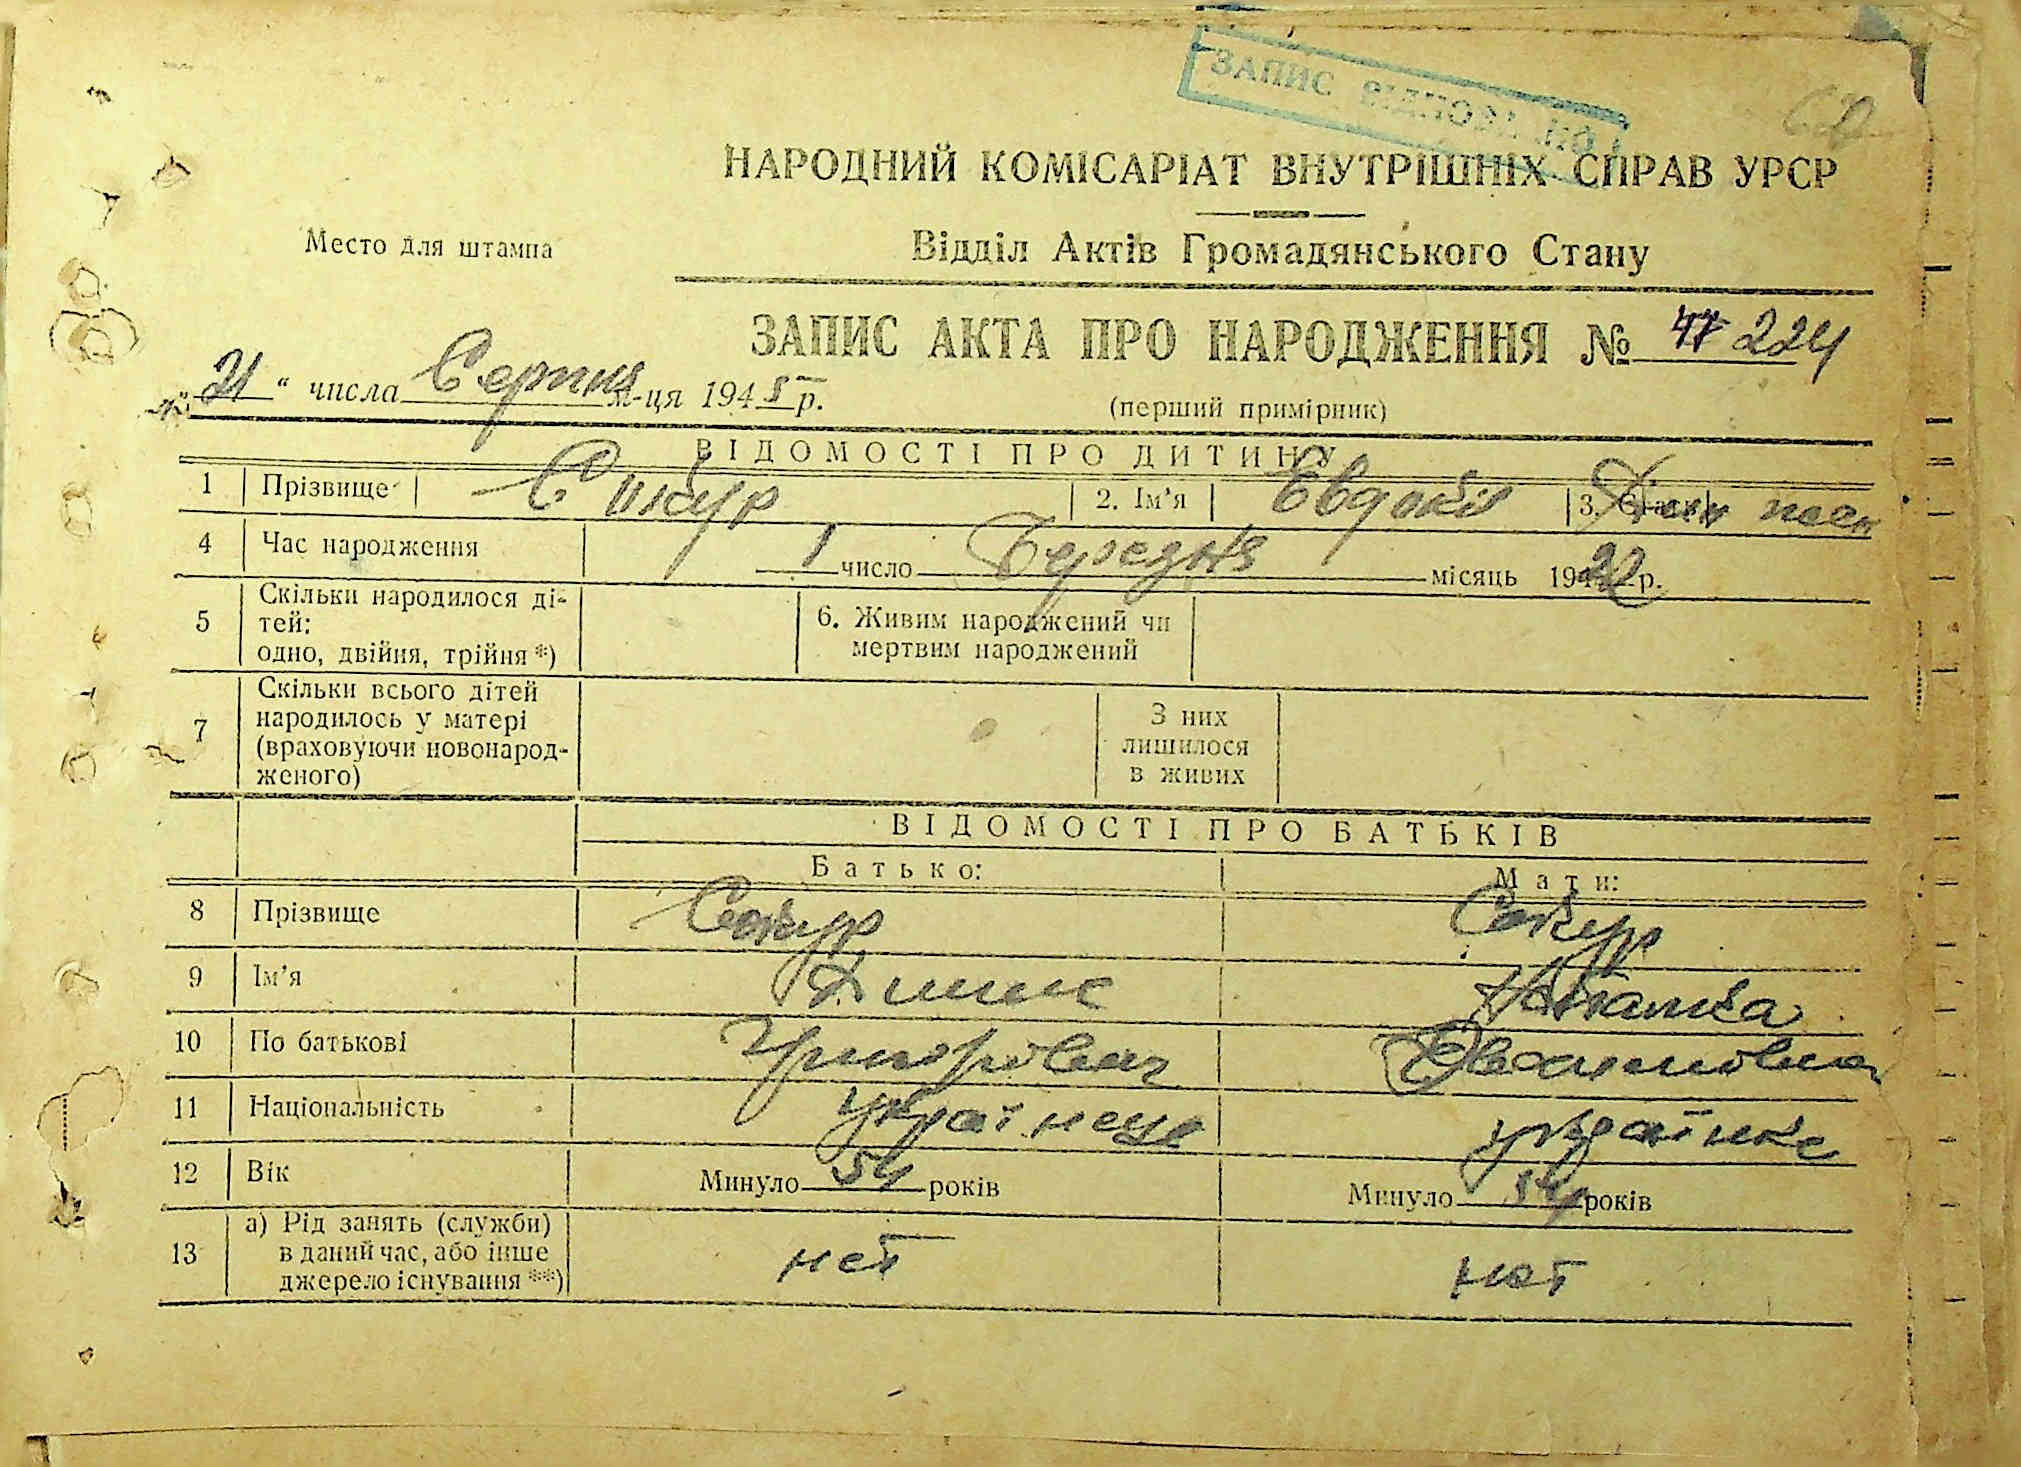 ЗАПИС ВІДНОВЛЕНО
62
НАРОДНИЙ КОМІСАРІАТ ВНУТРІШНІХ СПРАВ УРСР
Место для штампа
Відділ Актів Громадянського Стану
ЗАПИС АКТА ПРО НАРОДЖЕННЯ № 47 224
"21" числа Серпня м-ця 1945 р.
(перший примірник)
ВІДОМОСТІ ПРО ДИТИНУ
1 Прізвище Сикур 2. Ім'я Евдокія 3.
4 Час народження 1 число Березня місяць 1922 р.
5 Скільки народилося ді-
тей:
одно, двійня, трійня *)
6. Живим народжений чи
мертвим народжений
7 Скільки всього дітей
народилось у матері
(враховуючи новонарод-
женого)
З них
лишилося
в живих
ВІДОМОСТІ ПРО БАТЬКІВ
Батько: Мати:
8 Прізвище Сокур Сокур
9 Ім'я Денис Наталка
10 По батькові Григорович
11 Національність українець українка
12 Вік Минуло 54 років Минуло 54 років
13 а) Рід занять (служби)
в даний час, або інше
джерело існування **)
нет нет